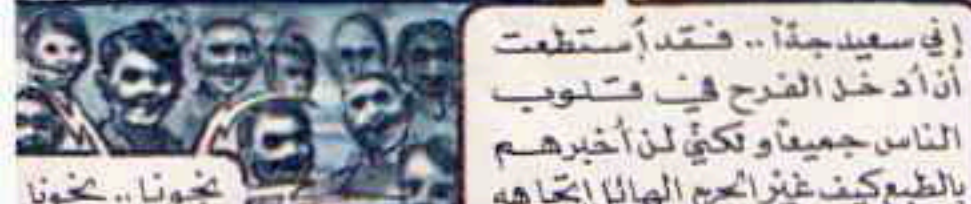 إني سعيد جداً.. فقد أستطعت
أن أدخل الفرح في قلوب
الناس جميعاً ولكني لن أخبرهم
بالطبع كيف غير الجرم الهائل اتجاهه
نجونا.. نجونا